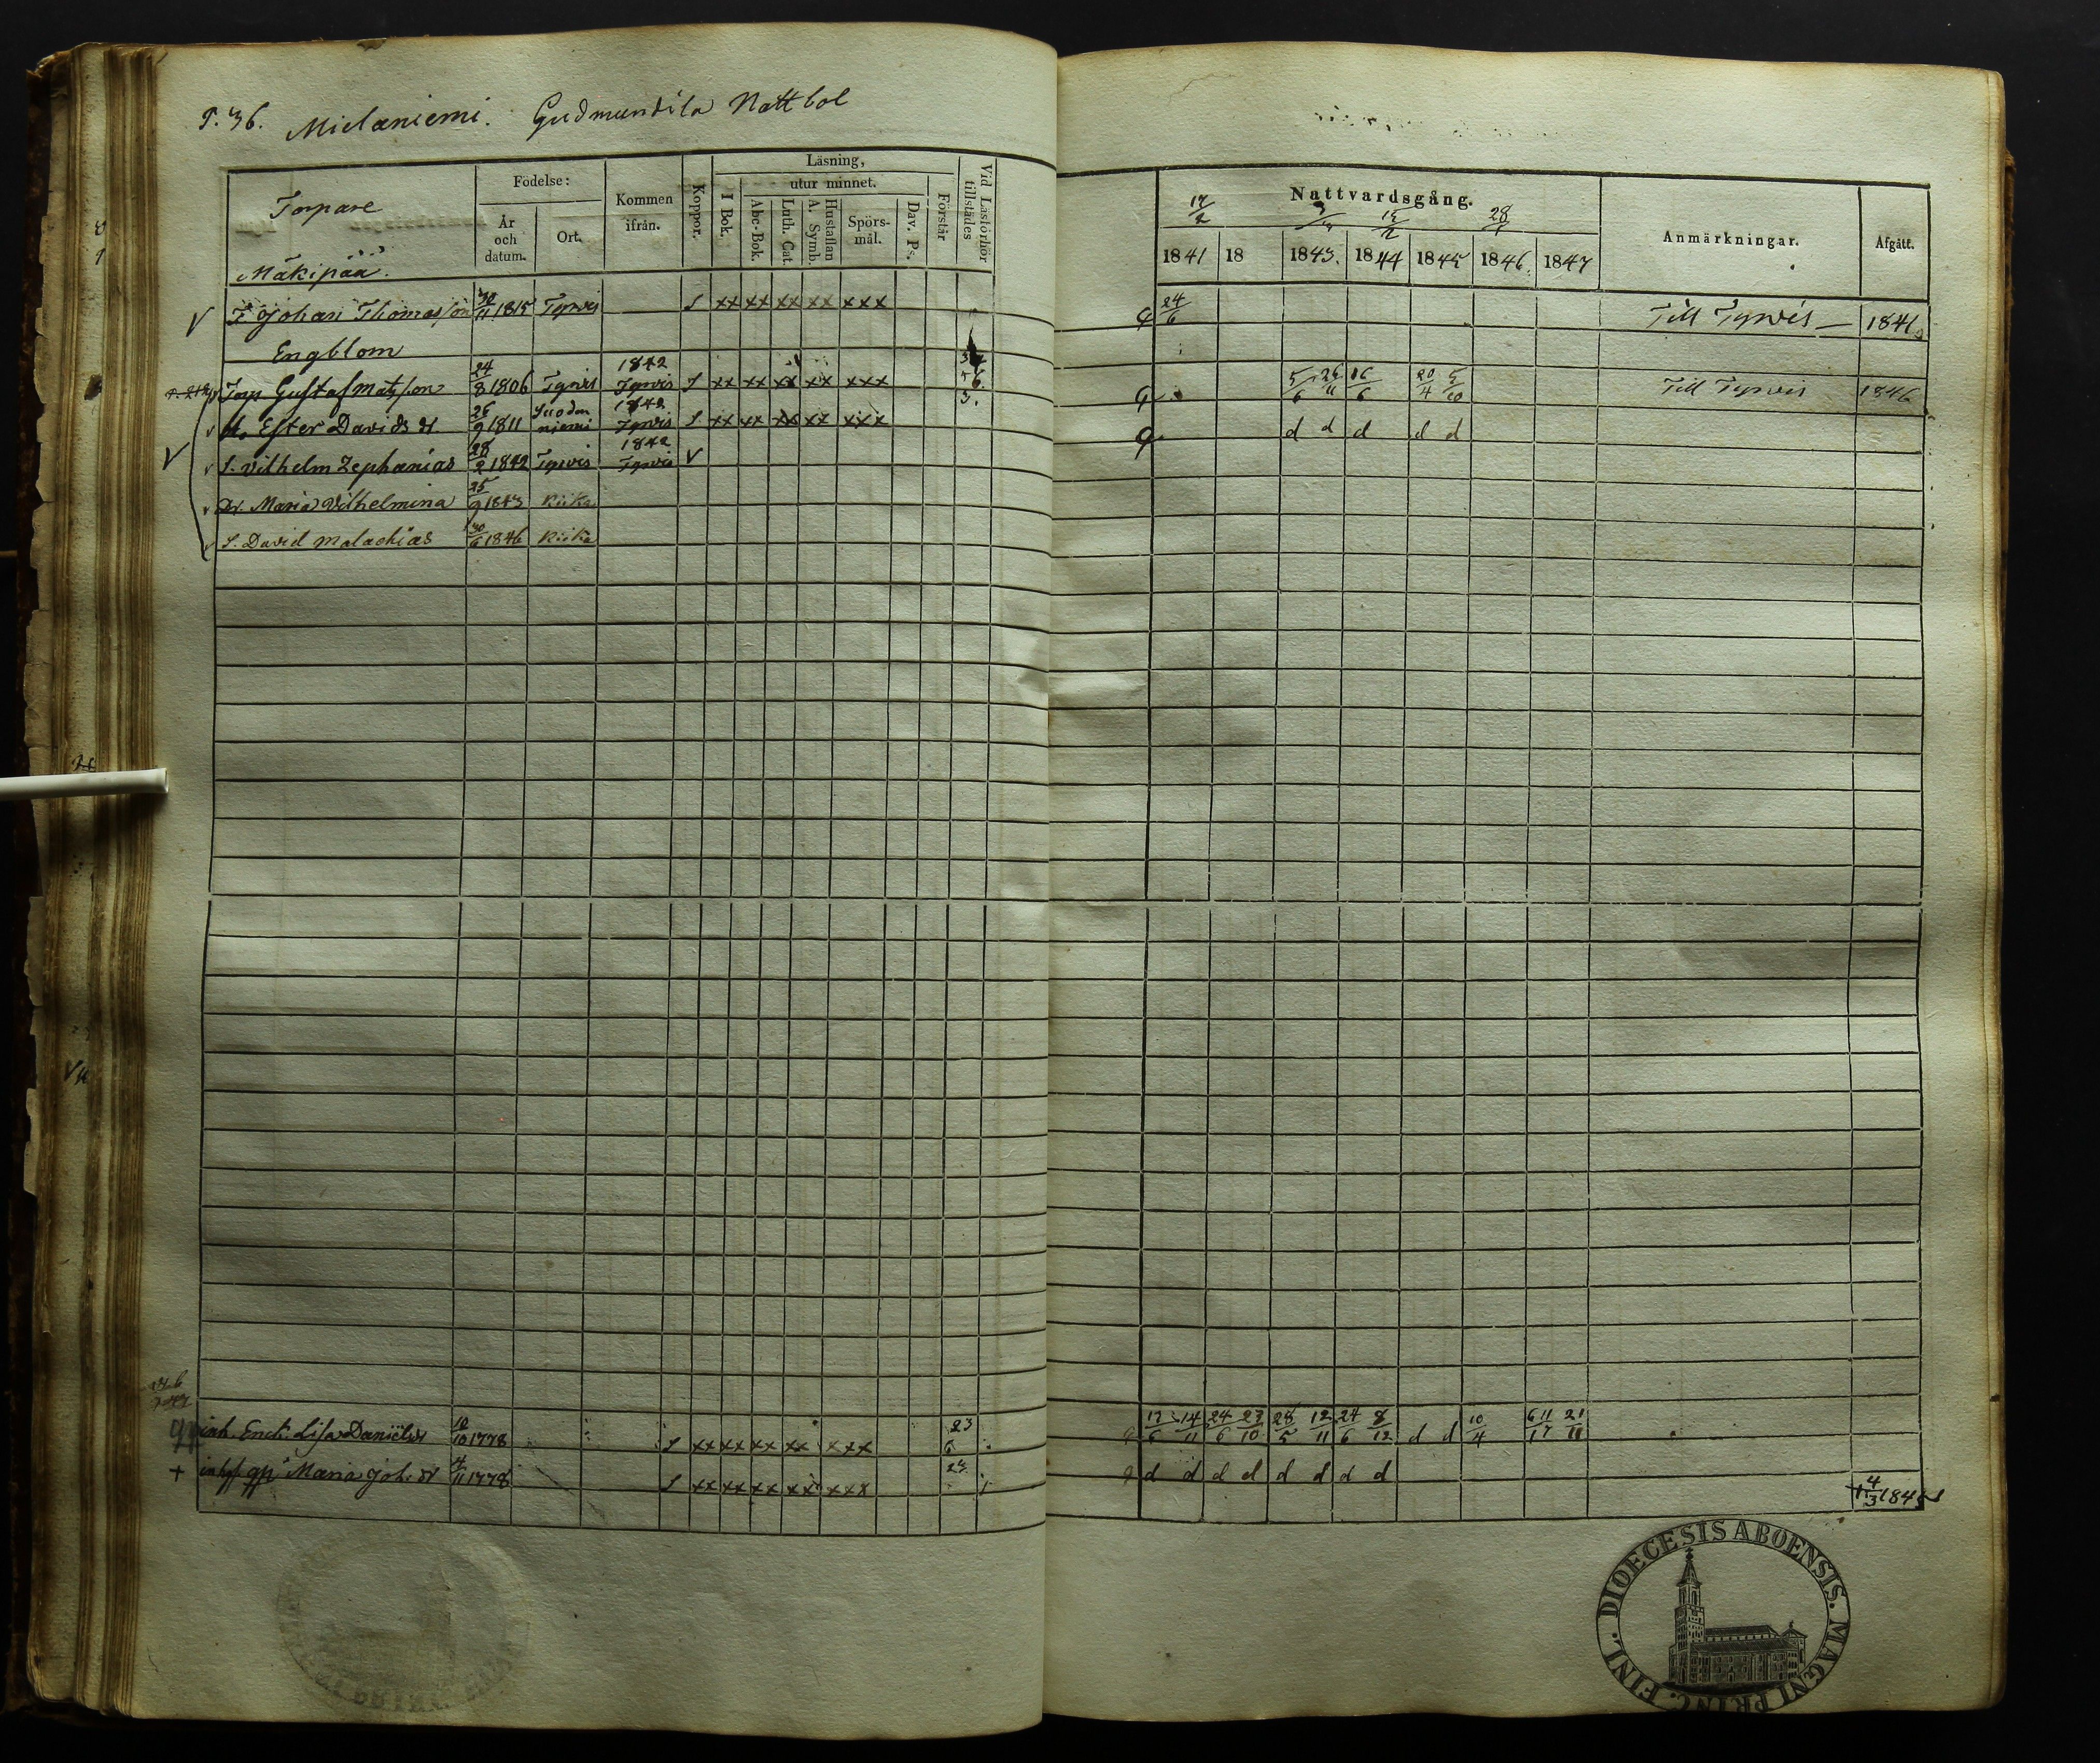 P. 36. Mielaniemi. Gudmundila Nattbol
Torpare
Födelse:
År och datum.
Ort.
Kommen ifrån.
Koppor.
Läsning,
I Bok.
utur minnet.
Abc-Bok.
Luth. Cat.
Hustaflan A. Symb.
Spörs-mål.
Dav. Ps.
Förstår
Vid Läsförhör tillstädes
Nattvardsgång.
17/2 15/2
1841 18 1843. 1844 1845 1846. 1847
Anmärkningar.
Afgått.
Mäkipää.
Johan Thomasson 30/11 1815 Tyrvis S xx xx xx xx xxx 24/6 Till Tyrvis — 1841
Engblom
Torp Gustaf Matsson 24/8 1806 Tyrvis 1842 Tyrvis S xx xx xx xx xxx 5/6 26/11 16/6 20/4 5/10 Till Tyrvis 1846
H. Ester Davids dr 26/9 1811 Suodenniemi 1842 Tyrvis S xx xx xx xx xxx d d d d d
S. Vilhelm Zephanias 28/2 1842 Tyrvis 1842 Tyrvis V
Dr. Maria Vilhelmina 25/9 1843 Kiika
S. David Malachias 30/6 1846 Kiika
inh. Enck. Lisa Daniels dr 10/10 1778 S xx xx xx xx xxx 23 6 14/11 24/6 23/10 28/5 12/11 24/6 8/12 d d 10/4
+ Maria Joh. dr 4/11 1778 S xx xx xx xx xxx d d d d d d d d + 4/3 1845
DIOECESIS ABOENSIS. MAGNI PRINC. FINL.